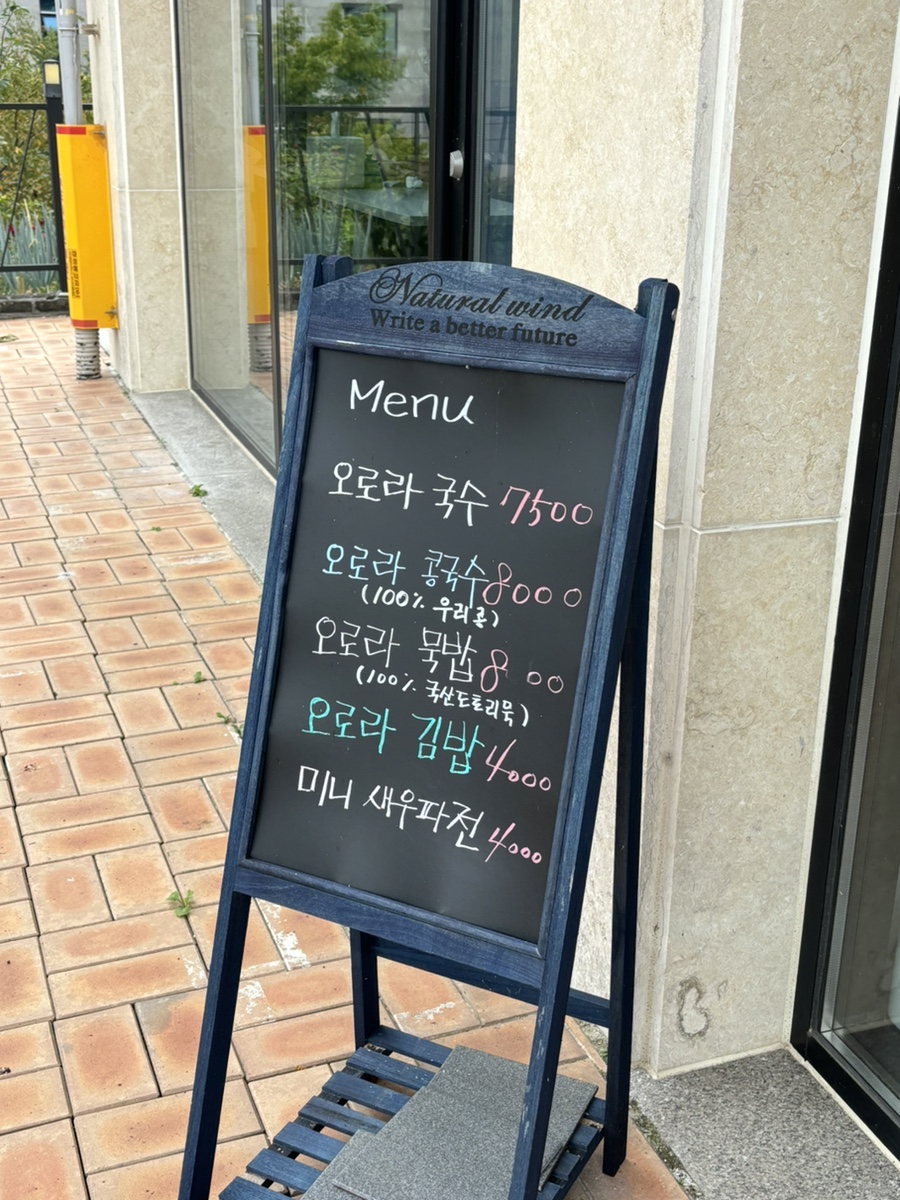 Natural wind
Write a better future
Menu
오로라 국수 7500
오로라 콩국수 8000
(100% 우리콩)
오로라 묵밥 8 00
(100% 국산도토리묵)
오로라 김밥 4000
미니 새우파전 4000